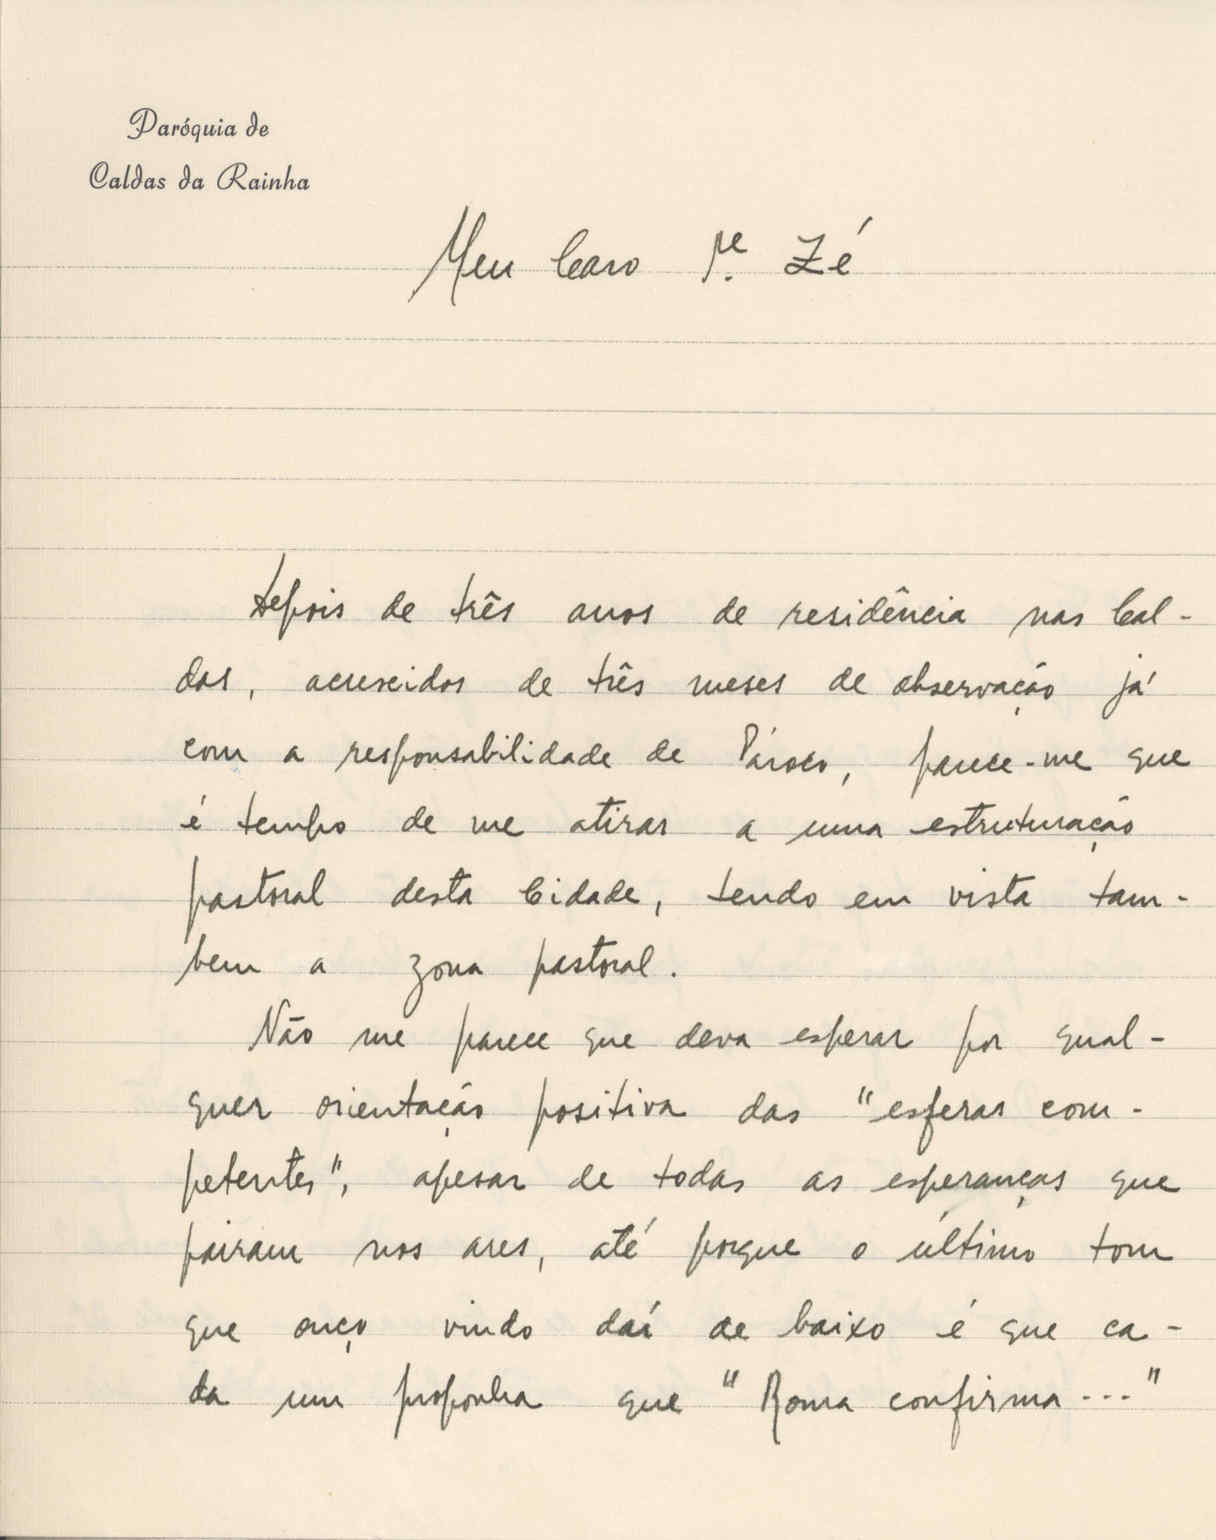 Paróquia de
Caldas da Rainha
Meu Caro Pe. Zé
Depois de três anos de residência nas Cal-
das, acrescidos de três meses de observação já
com a responsabilidade de Pároco, parece-me que
é tempo de me atirar a uma estruturação
pastoral desta Cidade, tendo em vista tam-
bem a zona pastoral.
Não me parece que deva esperar por qual-
quer orientação positiva das "esferas com-
petentes", apesar de todas as esperanças que
pairam nos ares, até porque o último tom
que ouço vindo daí de baixo é que ca-
da um proponha que "Roma confirma..."